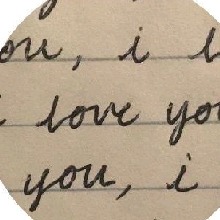 you, i l
i love you
you, i